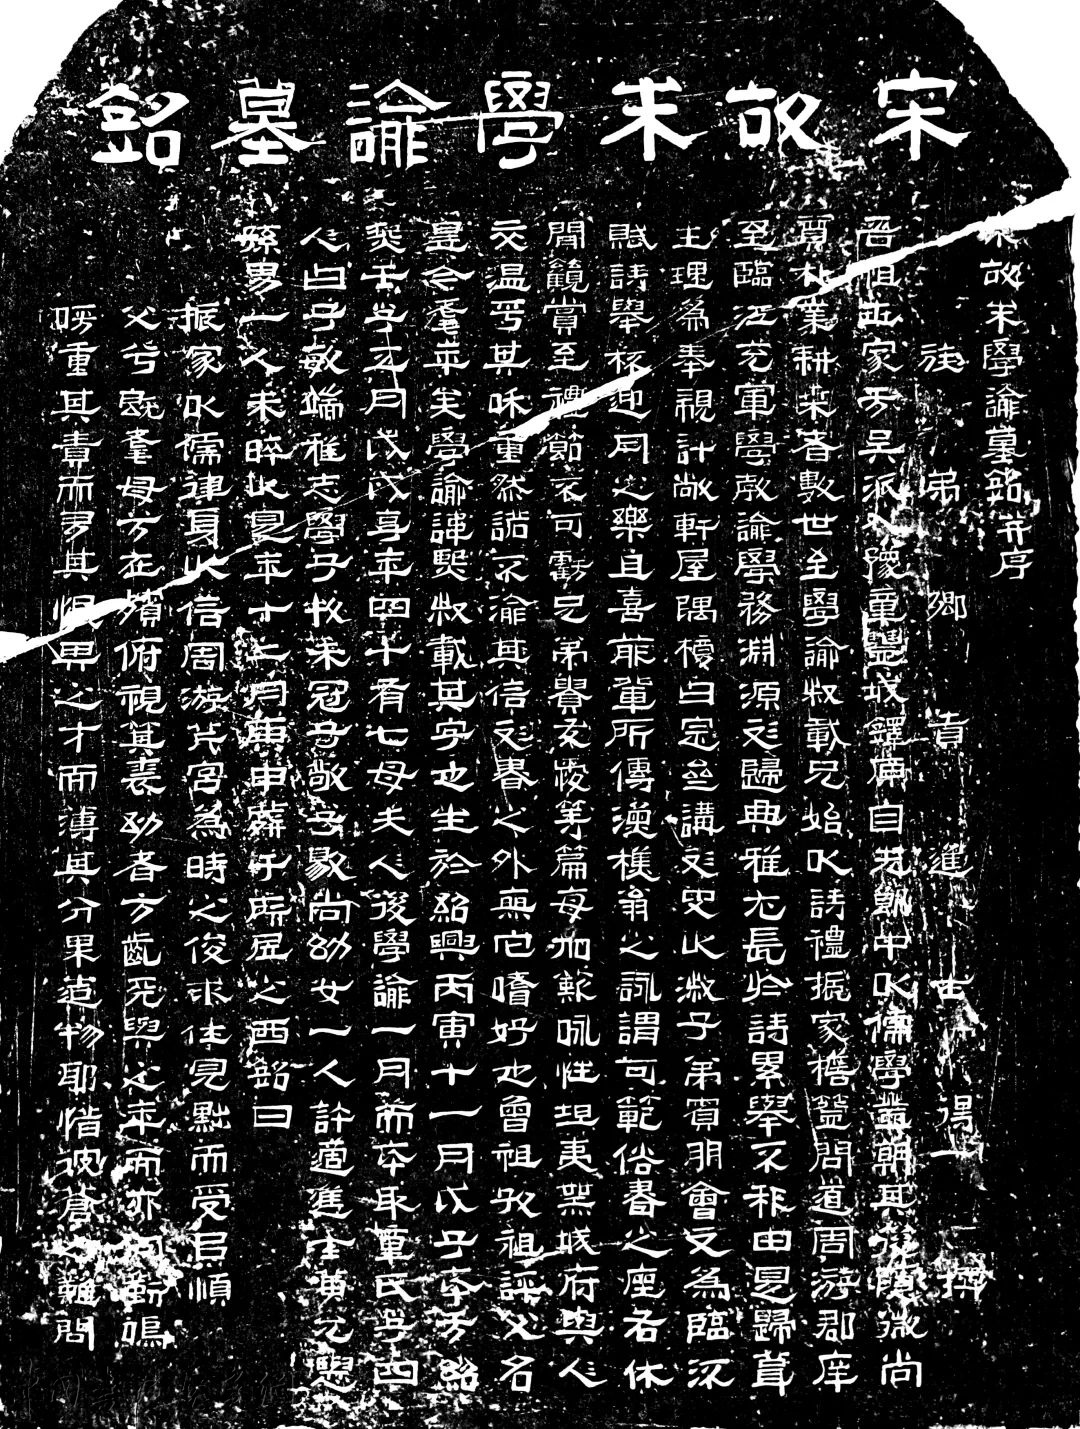 宋故朱學諭墓銘
宋故朱學諭墓銘并序
從弟鄉貢進士楊撰
吾祖世家于吳派入豫章豐城鐸原自其先中以儒學叢朝其後隱微尚
質朴業耕桑者數世至學諭叔載兄始以詩禮振家檐簦問道周游郡庠
至臨江充軍學教諭學務淵源文歸典雅尤長於詩累舉不利由是歸葺
生理為奉親計敞軒屋隅榜曰定然講文史以淑子弟賓朋會文為臨流
賦詩舉杯迎月之樂且喜前輩所傳漢樵翁之詞謂可範俗書之座右休
閒觀賞至禮節不可虧兄弟賢友以等篇每加歎詠性坦夷無城府與人
交溫乎其和重然諾不渝其信文書之外無它嗜好也曾祖孜祖諲父名
是今耄年矣學諭諱熙叔載其字也生於紹興丙寅十一月戊子卒於紹
熙壬子五月戊戌享年四十有七母夫人後學諭一月而卒取童氏子四
人曰子敏端雅志學子牧未冠子敬子敭尚幼女一人許適進士黃元懋
孫男一人未晬以是年十二月庚申葬于所居之西銘曰
振家以儒律身以信周游芹宮為時之俊求佳見黜而受臣順
父兮既耄母方在殯俯視其褭幼者方齔死與之年而亦何勤嗚
呼重其責而多其恨畀之才而溥其分果造物耶惜彼蒼之難問